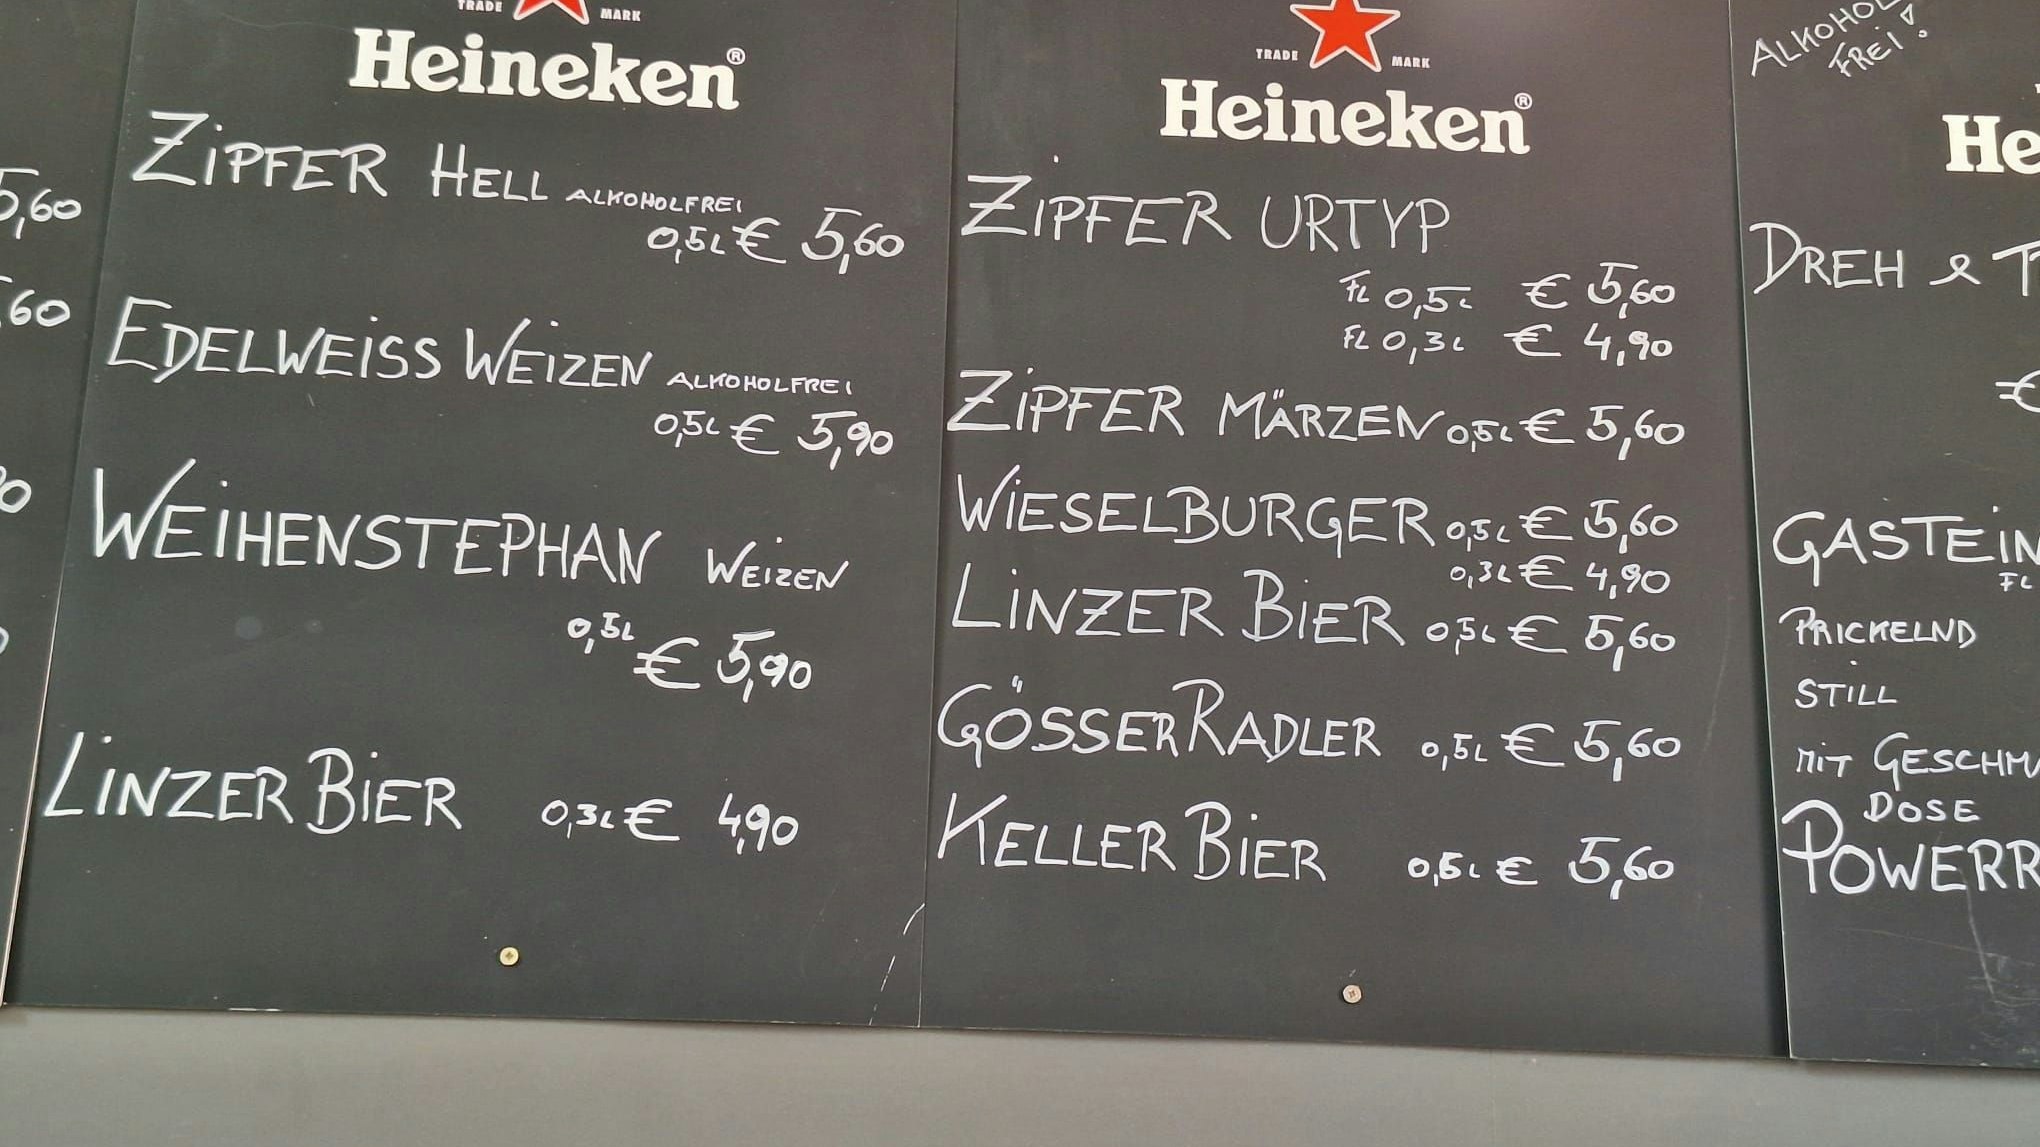 5,60
,60
TRADE MARK
Heineken®
ZIPFER HELL ALKOHOLFREI
0,5L € 5,60
EDELWEISS WEIZEN ALKOHOLFREI
0,5L € 5,90
WEIHENSTEPHAN WEIZEN
0,5L
€ 5,90
LINZER BIER 0,3L € 4,90
TRADE MARK
Heineken®
ZIPFER URTYP
FL 0,5L € 5,60
FL 0,3L € 4,90
ZIPFER MÄRZEN 0,5L € 5,60
WIESELBURGER 0,5L € 5,60
0,3L € 4,90
LINZER BIER 0,5L € 5,60
GÖSSER RADLER 0,5L € 5,60
KELLER BIER 0,5L € 5,60
ALKOHOL
FREI!
He
DREH & T
€
GASTEIN
FL
PRICKELND
STILL
MIT GESCHMA
DOSE
POWERR